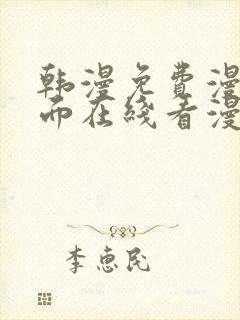 韩漫免费漫
而在线看漫
李惠民